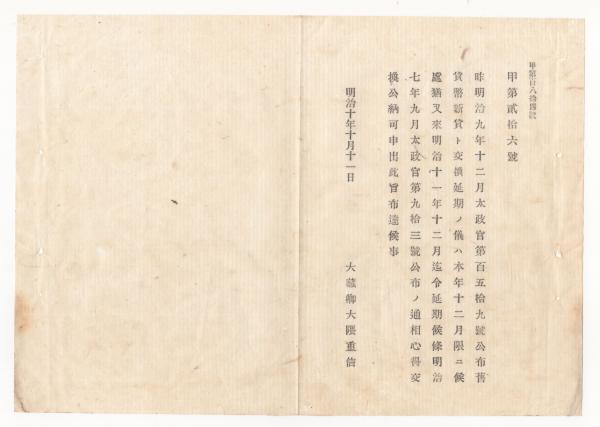 甲第百八拾四號
甲第貳拾六號
昨明治九年十二月太政官第百五拾九號公布舊
貨幣新貨ト交換延期ノ儀ハ本年十二月限ニ候
處猶又來明治十一年十二月迄令延期候條明治
七年九月太政官第九拾三號公布ノ通相心得交
換公納可申出此旨布達候事
明治十年十月十一日
大藏卿大隈重信